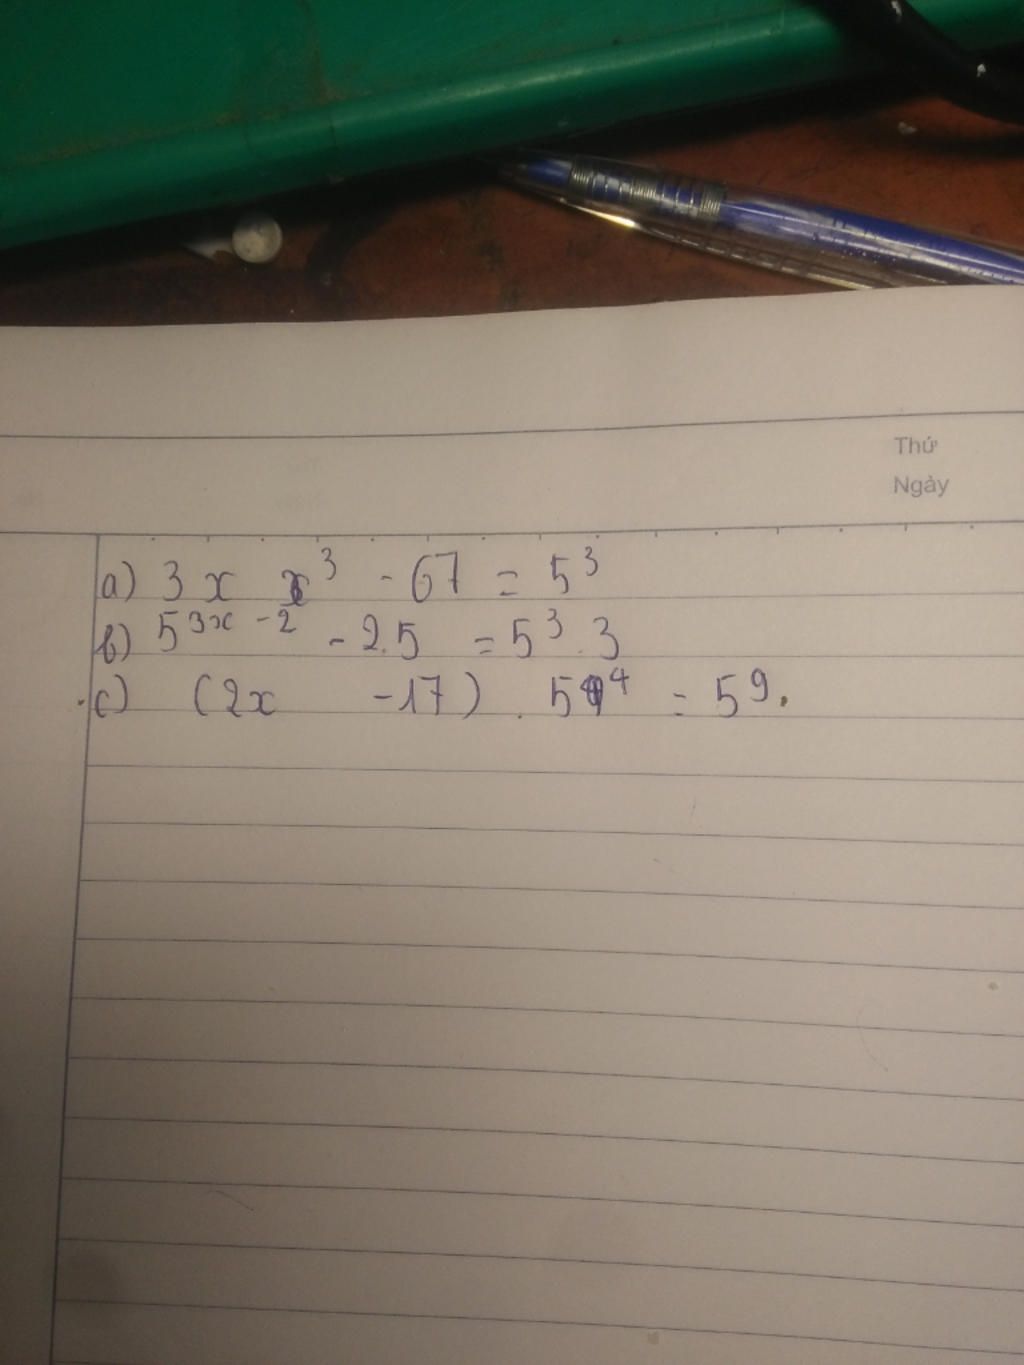 Thứ
Ngày
a) 3 x x³ - 67 = 5³
b) 5³ˣ ⁻² - 2.5 = 5³.3
c) (2x -17) . 5⁴ = 5⁹.